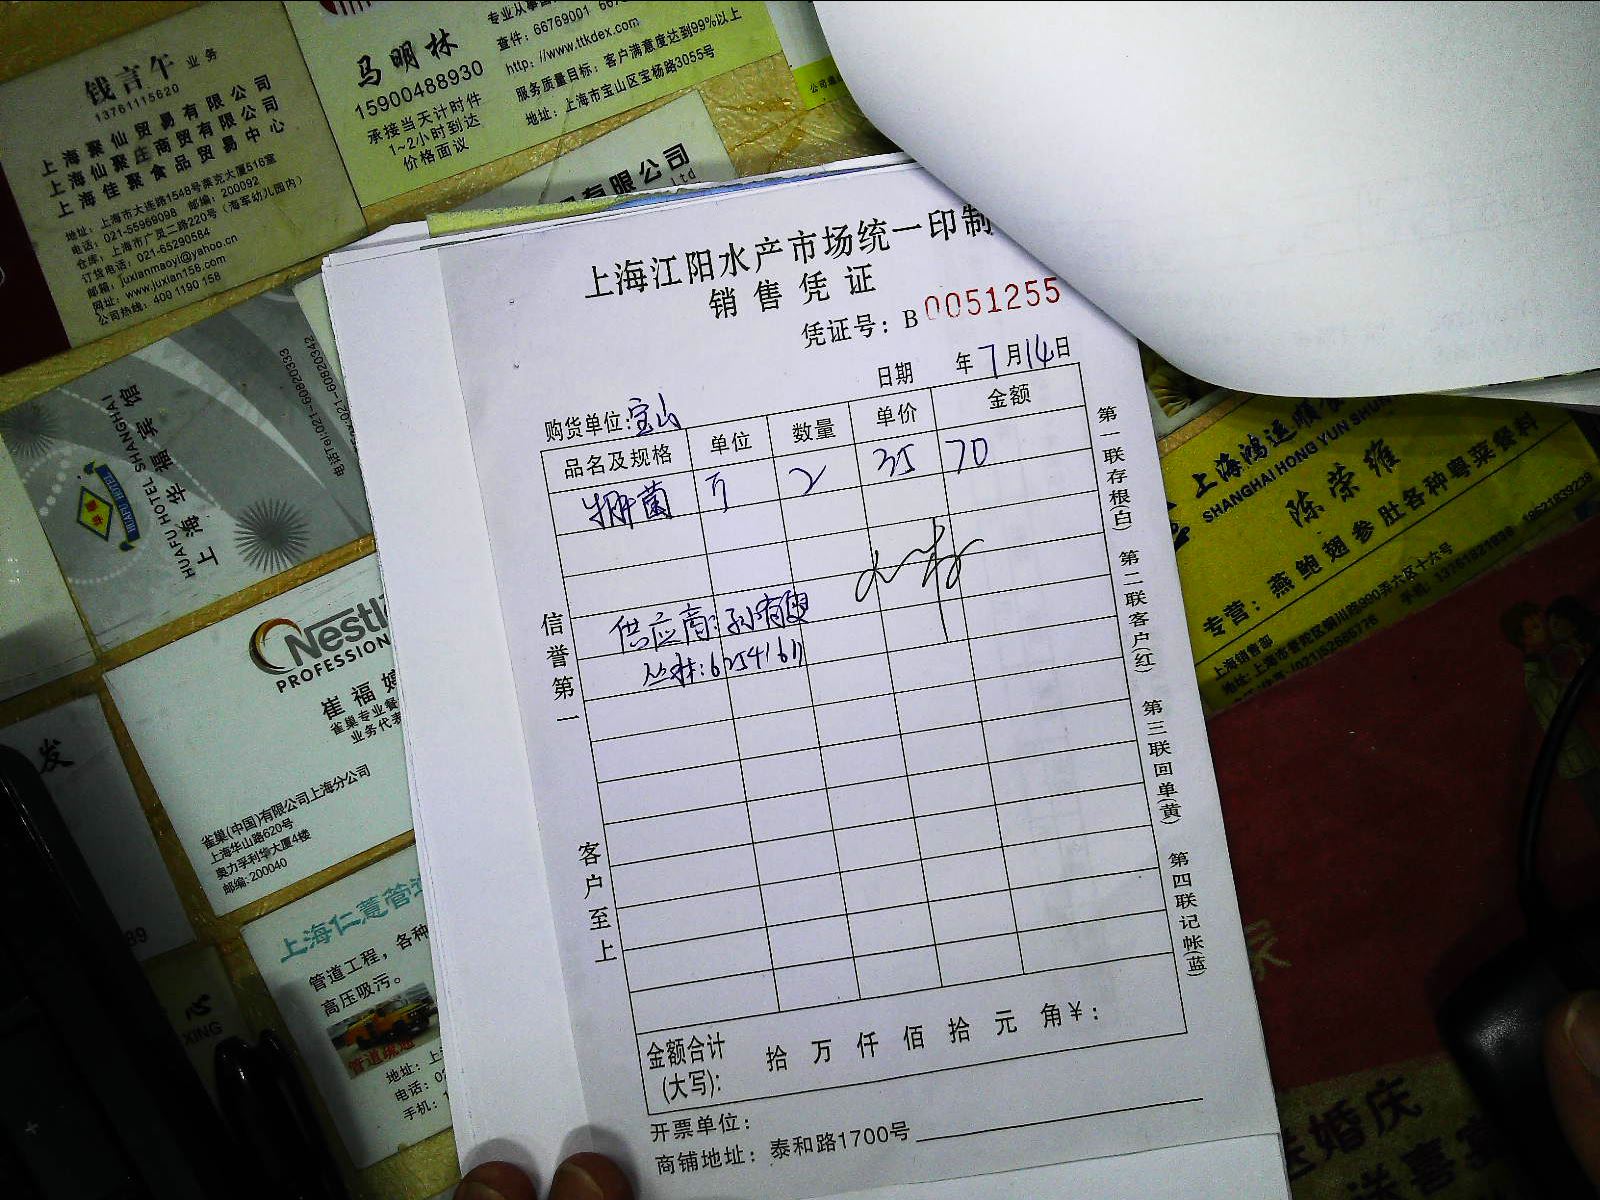 钱言午 业务
13761115620
上海聚仙贸易有限公司
上海仙聚庄商贸有限公司
上海佳聚食品贸易中心
地址：上海市大连路1548号莱克大厦516室
电话：021-55969098 邮编：200092
仓库：上海市广灵二路220号（海军幼儿园内）
订货电话：021-65290584
邮箱：juxianmaoyi@yahoo.cn
网址：www.juxian158.com
公司热线：400 1190 158
马明林
15900488930
承接当天计时件
1~2小时到达
价格面议
查件：66769001
http://www.ttkdex.com
服务质量目标：客户满意度达到99%以上
地址：上海市宝山区宝杨路3055号
有限公司
Ltd
上海江阳水产市场统一印制
销售凭证
凭证号：B 0051255
日期 年7月14日
购货单位：宝山
品名及规格 单位 数量 单价 金额
2 35 70
供应商：孙有
丛林：62541611
信誉第一
客户至上
金额合计(大写)： 拾 万 仟 佰 拾 元 角 ¥：
开票单位：
商铺地址：泰和路1700号
第一联存根(白) 第二联客户(红) 第三联回单(黄) 第四联记帐(蓝)
上海华福宾馆
HUAFU HOTEL SHANGHAI
HUAFU HOTEL
电话Tel:021-60820333
021-60820342
Nestl
PROFESSION
崔福
雀巢专业餐
业务代表
雀巢(中国)有限公司上海分公司
上海华山路620号
奥力孚利华大厦4楼
邮编：200040
发
上海仁薏管道
管道工程，各种
高压吸污。
管道疏通
地址：上
电话：02
手机：1
心
XING
上海鸿运顺
SHANGHAI HONG YUN SHUN
陈荣维
专营：燕鲍翅参肚各种粤菜餐料
上海销售部
地址：上海市普陀区铜川路990弄六区十六号
(021)52685776
手机：13761821939 18621839238
婚庆
喜